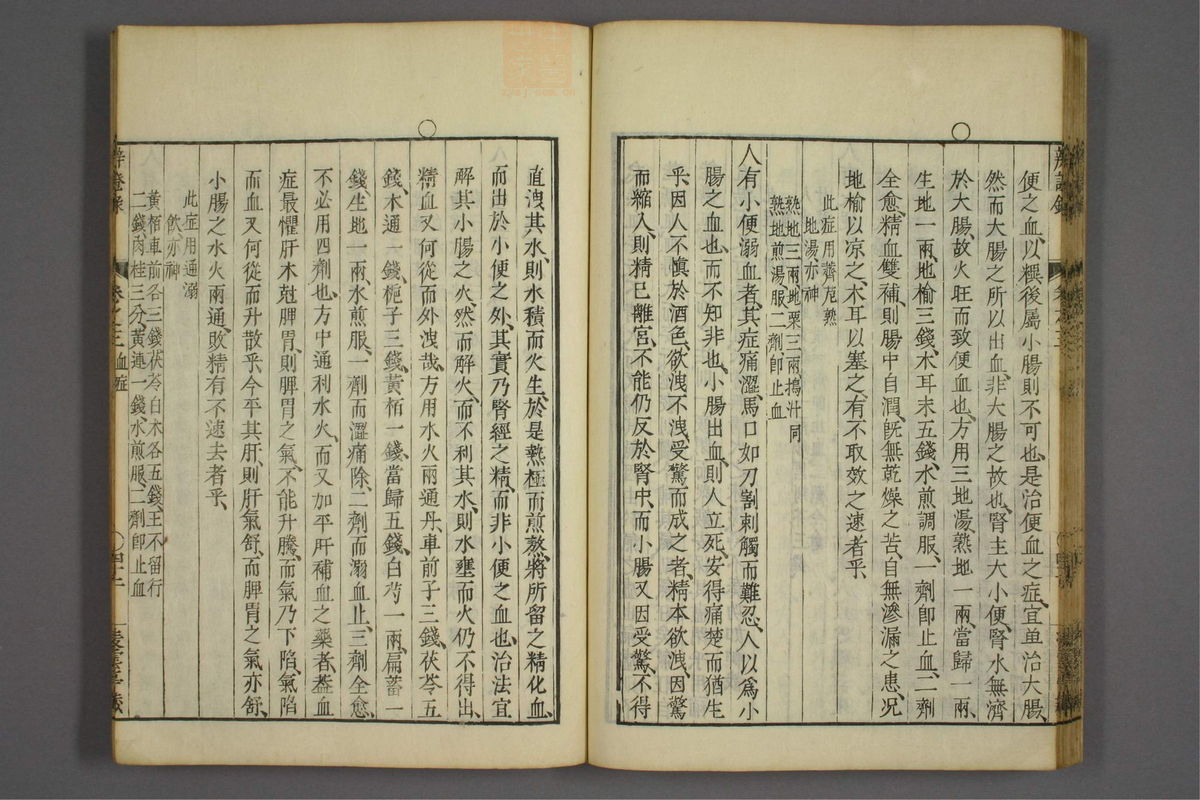 便之血、以糞後屬小腸則不可也、是治便血之症、宜单治大腸、
然而大腸之所以出血、非大腸之故也、腎主大小便、腎水無濟
於大腸、故火旺而致便血也、方用三地湯、熟地一兩、當歸一兩、
生地一兩、地榆三錢、木耳末五錢、水煎調服、一劑卽止血、二劑
全愈、精血雙補、則腸中自潤、旣無乾燥之苦、自無滲漏之患、况
地榆以凉之、木耳以塞之、有不取效之速者乎、
此症用薺苨熟
地湯亦神
熟地三兩、地栗三兩、搗汁同
熟地煎湯服、二劑卽止血
人有小便溺血者、其症痛澀、馬口如刀割刺觸而難忍、人以爲小
腸之血也、而不知非也、小腸出血、則人立死、安得痛楚而猶生
乎、因人不愼於酒色、欲洩不洩、受驚而成之者、精本欲洩、因驚
而縮入、則精已離宮、不能仍反於腎中、而小腸又因受驚、不得
辨證錄
卷之三 血症
四十二
直洩其水、則水積而火生、於是熱極而煎熬、將所留之精化血、
而出於小便之外、其實乃腎經之精、而非小便之血也、治法宜
解其小腸之火、然而解火、而不利其水、則水壅而火仍不得出、
精血又何從而外洩哉、方用水火兩通丹、車前子三錢、茯苓五
錢、木通一錢、梔子三錢、黃栢一錢、當歸五錢、白芍一兩、扁蓄一
錢、生地一兩、水煎服、一劑而澀痛除、二劑而溺血止、三劑全愈、
不必用四劑也、方中通利水火、而又加平肝補血之藥者、葢血
症最懼肝木尅脾胃、則脾胃之氣、不能升騰、而氣乃下陷、氣陷
而血又何從而升散乎、今平其肝、則肝氣舒、而脾胃之氣亦舒、
小腸之水火兩通、敗精有不速去者乎、
此症用通溺
飲亦神
黃栢車前各三錢、茯苓白术各五錢、王不留行
二錢、肉桂三分、黃連一錢、水煎服、二劑卽止血